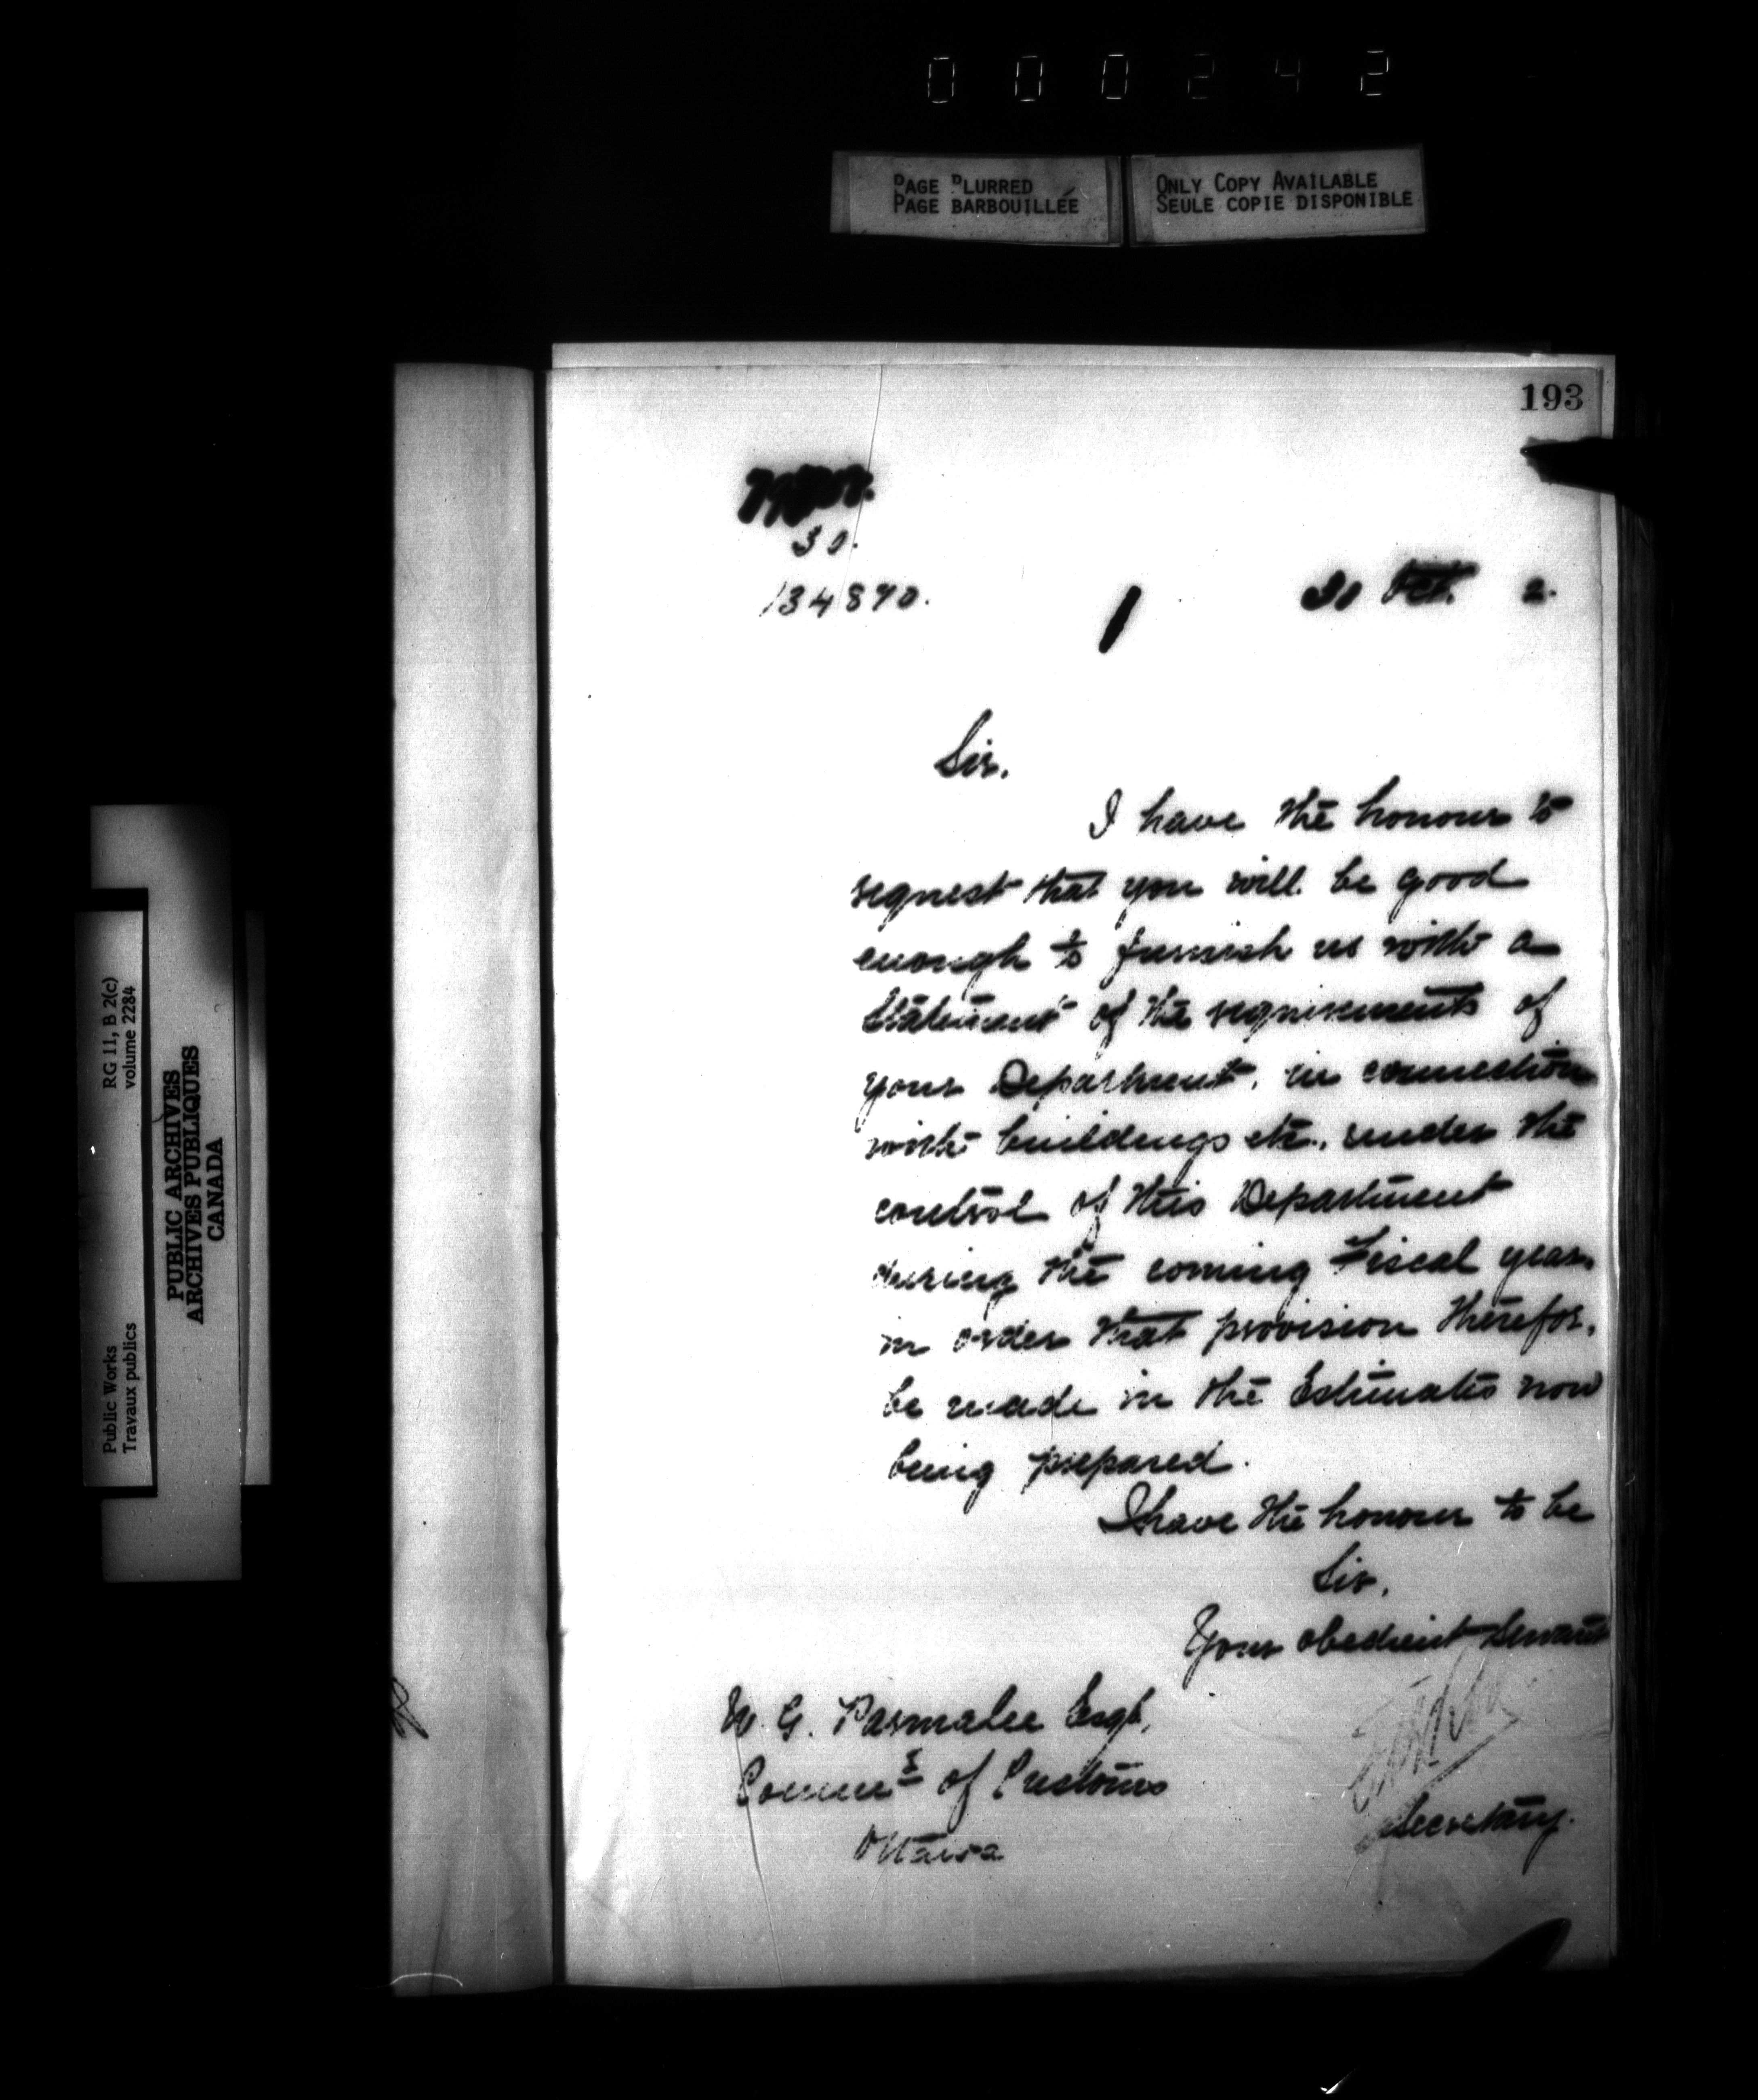 000242
PAGE BLURRED
PAGE BARBOUILLÉE
ONLY COPY AVAILABLE
SEULE COPIE DISPONIBLE
193
30.
134890.
1
Oct. 2.
Sir,
I have the honour to
request that you will be good
enough to furnish us with a
statement of the requirements of
your Department, in connection
with buildings etc., under the
control of this Department
during the coming Fiscal year,
in order that provision therefor,
be made in the Estimates now
being prepared.
I have the honour to be
Sir,
Your obedient Servant
Secretary.
W. G. Parmalee Esqr,
Commr of Customs
Ottawa
Public Works
Travaux publics
RG 11, B 2(c)
volume 2284
PUBLIC ARCHIVES
ARCHIVES PUBLIQUES
CANADA